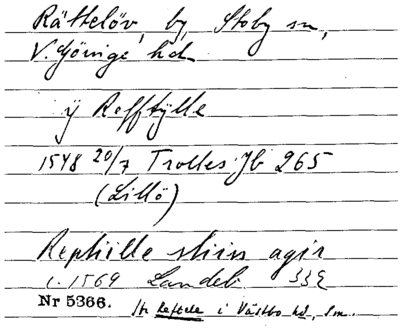 Rättelöv, by, Stoby sn,
V. Göinge hd
ij Refftylle
1548 20/7 Trolles Jb 265
(Lillö)
Rephille
c. 1569 Landeb.
Nr 5366. Refftele i Västbo hd, Sm.